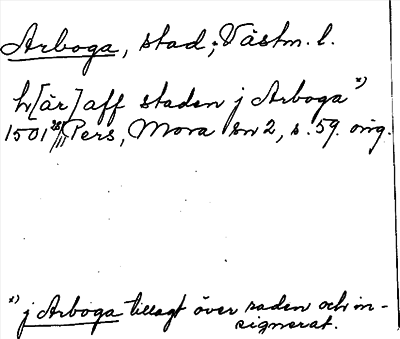 Arboga, stad; Västm. l.
h[är] aff staden j Arboga *)
1501 28/11 Pers, Mora sn 2, s. 59. orig.
*) j Arboga tillagt över raden och in-
signerat.